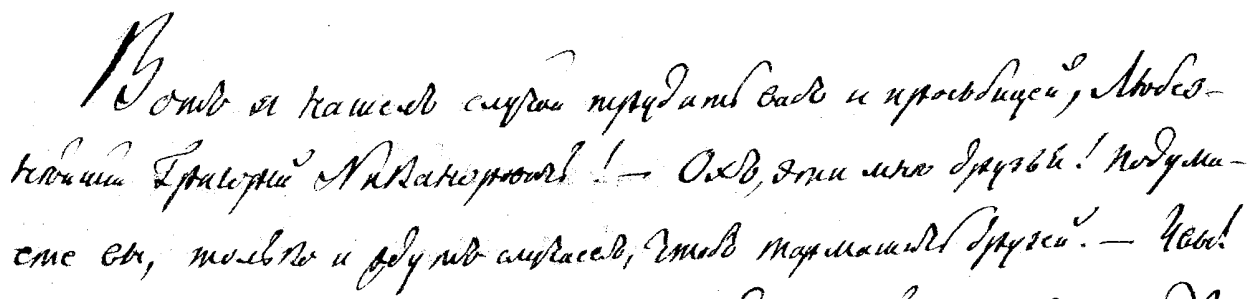 Вотъ я нашелъ случай трудить васъ и просьбицей, Любез-
нѣйшій Григорій Никаноровичъ! — Охъ, эти мнѣ друзья! подума-
ете вы, только и ждутъ случаевъ, чтобъ тормошить друзей. — Увы!